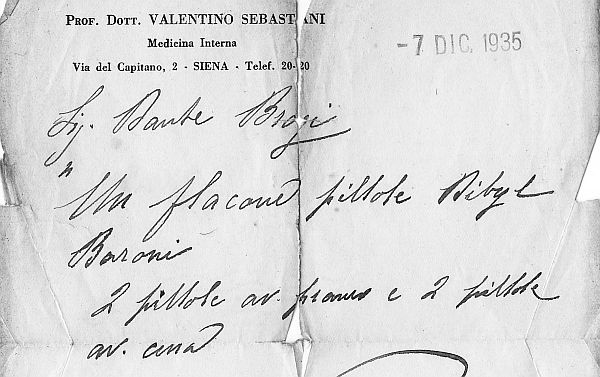 Prof. Dott. VALENTINO SEBASTIANI
Medicina Interna
Via del Capitano, 2 - SIENA - Telef. 20-20
-7 DIC. 1935
Sig. Dante Brogi
"Un flacone pillole Bibyl
Baroni
2 pillole av. pranzo e 2 pillole
av. cena